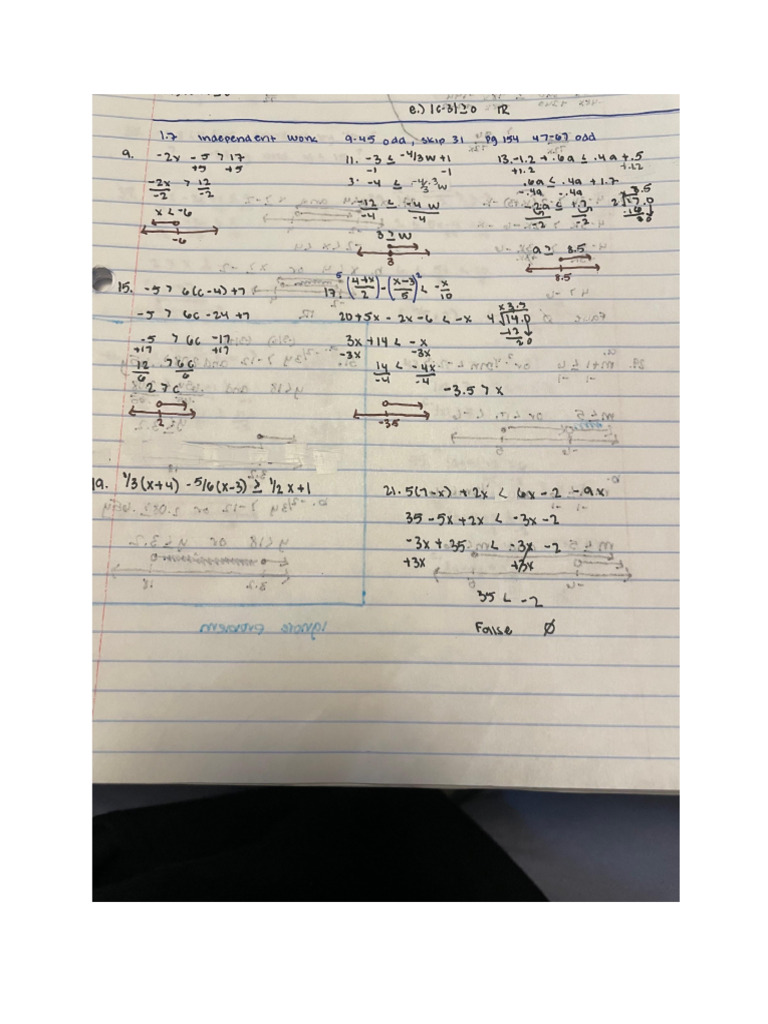 e.) |c-3| ≥ 0 ℝ
1.7 independent work 9-45 odd, skip 31 pg 154 47-67 odd
9. -2x - 5 > 17
+5 +5
-2x/-2 > 12/-2
x < -6
-6
11. -3 ≤ -4/3 w + 1
-1 -1
3· -4 ≤ -4·3/3 w
-12/-4 ≤ -4w/-4
3 ≥ w
3
13. -1.2 + .6a ≤ .4a + .5
+1.2 +1.2
.6a ≤ .4a + 1.7
-.4a -.4a
a ≥ 8.5
8.5
15. -5 > 6(c-4) + 7
-5 > 6c - 24 + 7
-5 > 6c - 17
+17 +17
12/6 > 6c/6
2 > c
2
17. 5 (4+x/2) - (x-3/5) 2 < -x/10
20 + 5x - 2x - 6 < -x
3x + 14 < -x
-3x -3x
14/-4 < -4x/-4
-3.5 > x
-3.5
x 3.5
4 14.0
-12
20
19. 1/3(x+4) - 5/6(x-3) ≥ 1/2x + 1
21. 5(7-x) + 2x < 6x - 2 - 9x
35 - 5x + 2x < -3x - 2
-3x + 35 < -3x - 2
+3x +3x
35 < -2
False ∅